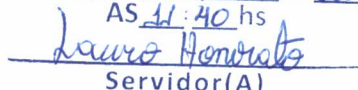 AS 11:40 hs
Lauro Honorato
Servidor(A)